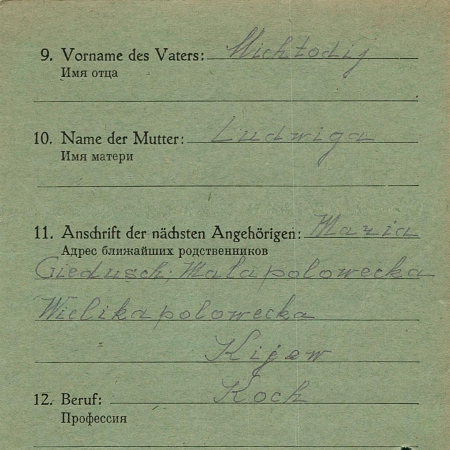 9. Vorname des Vaters: Michtodij
Имя отца
10. Name der Mutter: Ludwiga
Имя матери
11. Anschrift der nächsten Angehörigen: Maria
Адрес ближайших родственников
Giedusch, Malapolowecka
Wielikapolowecka
Kijew
12. Beruf: Koch
Профессия